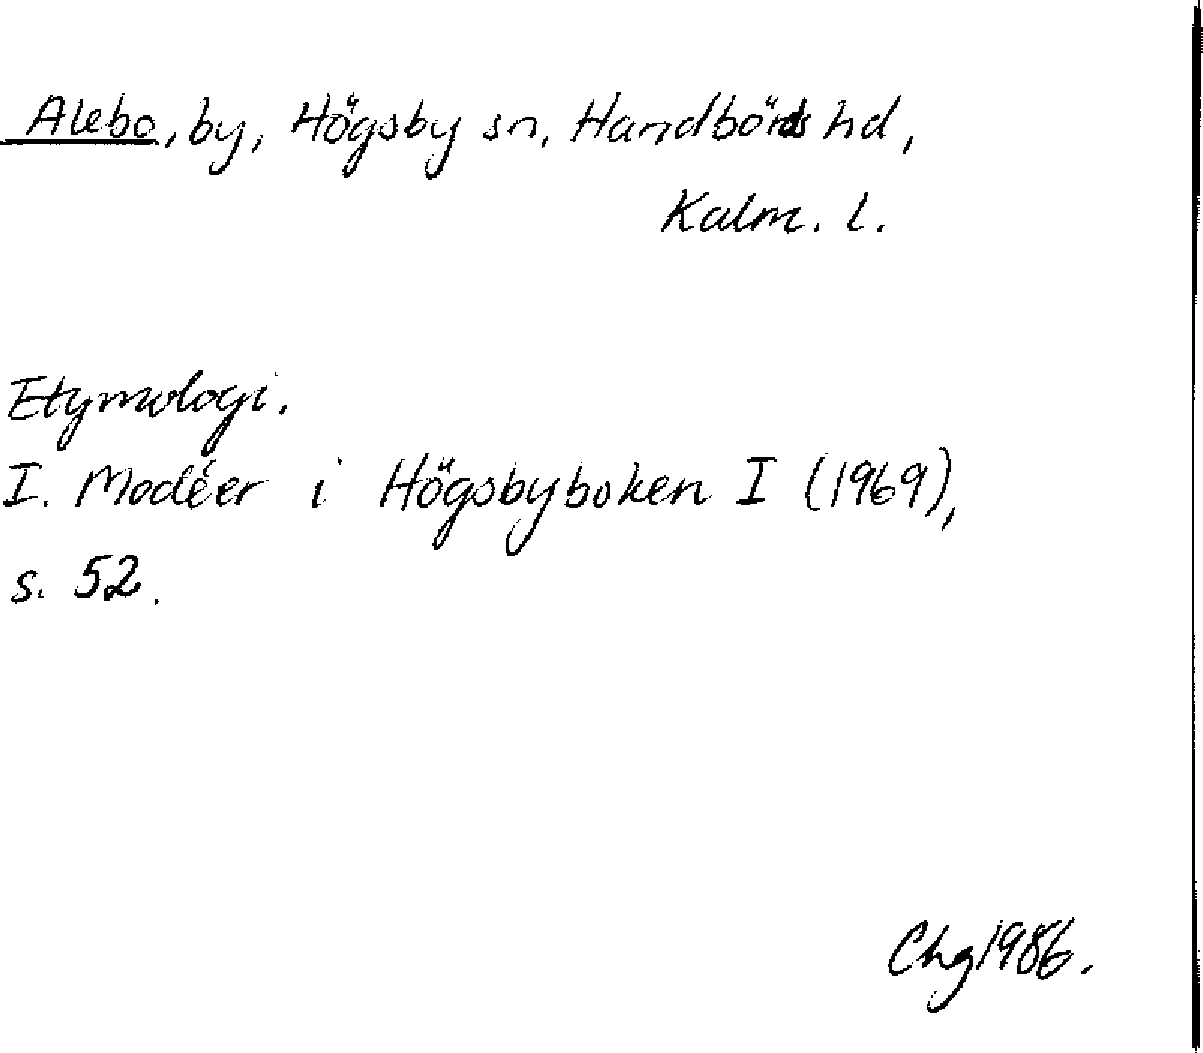 Alebo, by, Högsby sn, Handbörds hd,
Kalm. l.
Etymologi.
I. Modéer i Högsbyboken I (1969),
s. 52.
Chg 1986.